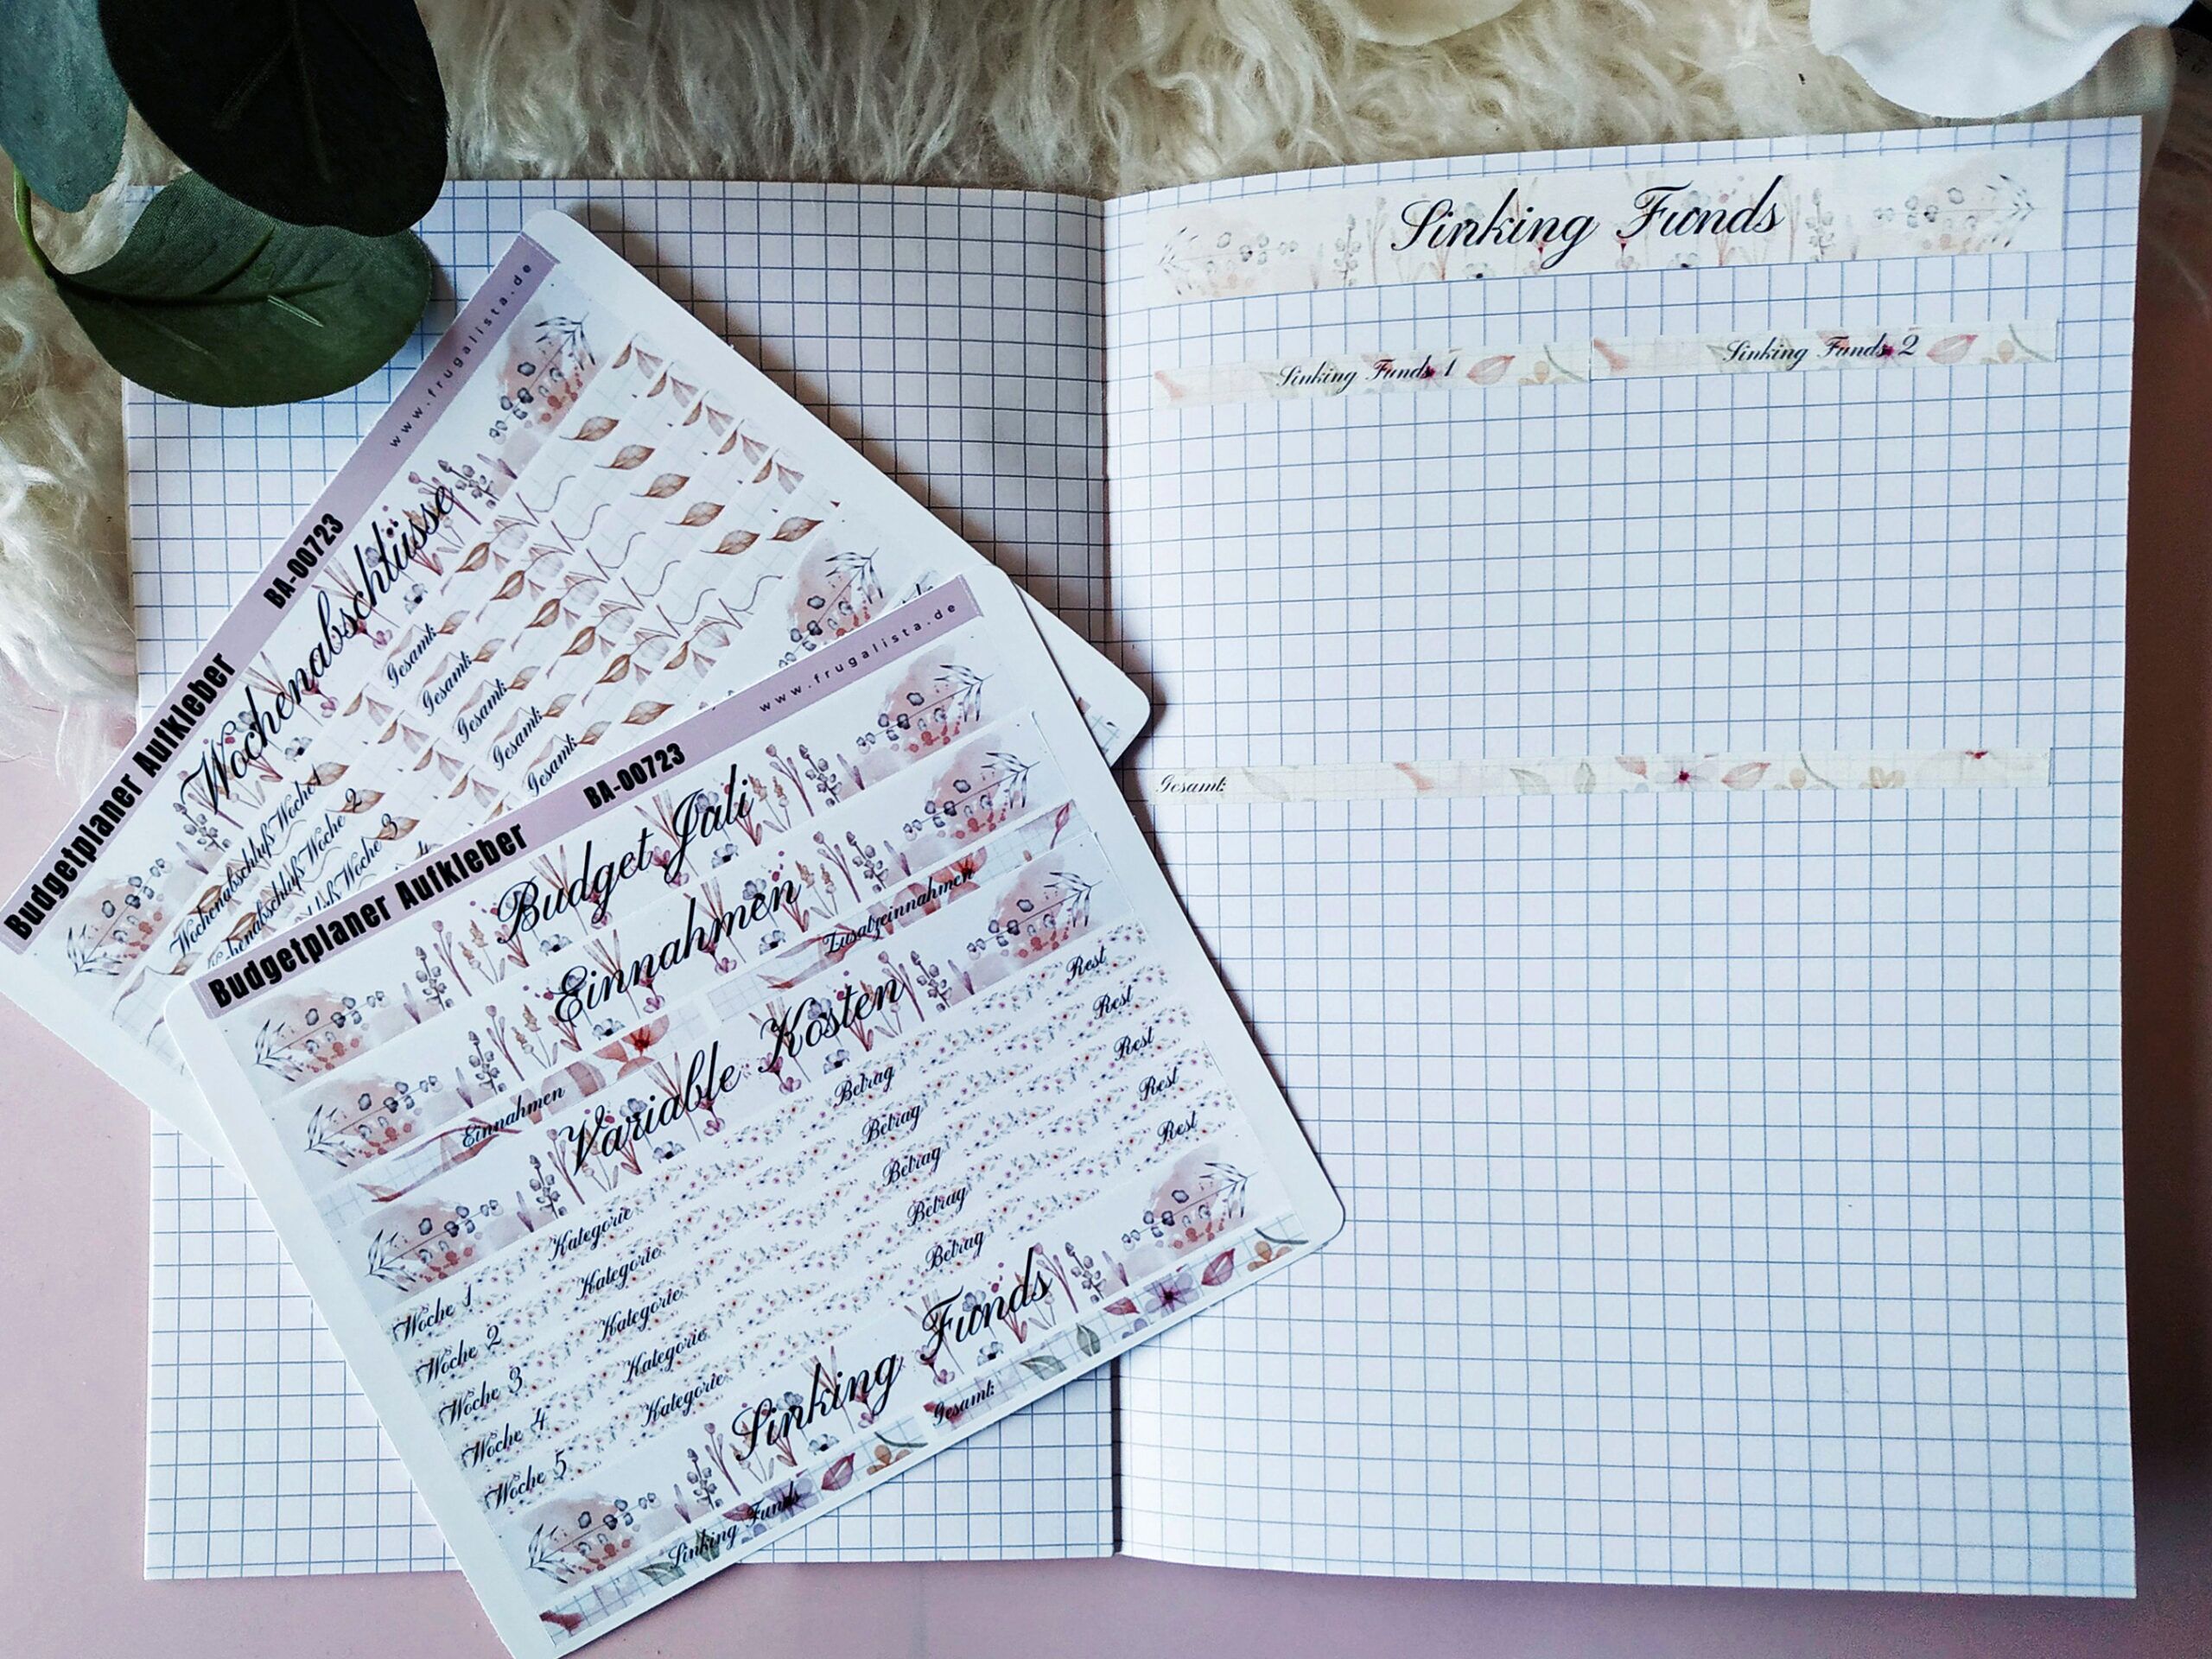 Sinking Funds
Sinking Funds 1
Sinking Funds 2
Gesamt:
Budgetplaner Aufkleber BA-00723 www.frugalista.de
Wochenabschlüsse
Wochenabschluß Woche 1
Wochenabschluß Woche 2
Woche 3
Gesamt:
Gesamt:
Gesamt:
Gesamt:
Gesamt:
Budgetplaner Aufkleber BA-00723 www.frugalista.de
Budget Juli
Einnahmen
Einnahmen Zusatzeinnahmen
Variable Kosten
Woche 1 Kategorie Betrag Rest
Woche 2 Kategorie Betrag Rest
Woche 3 Kategorie Betrag Rest
Woche 4 Kategorie Betrag Rest
Woche 5 Kategorie Betrag Rest
Sinking Funds
Sinking Funds Gesamt: